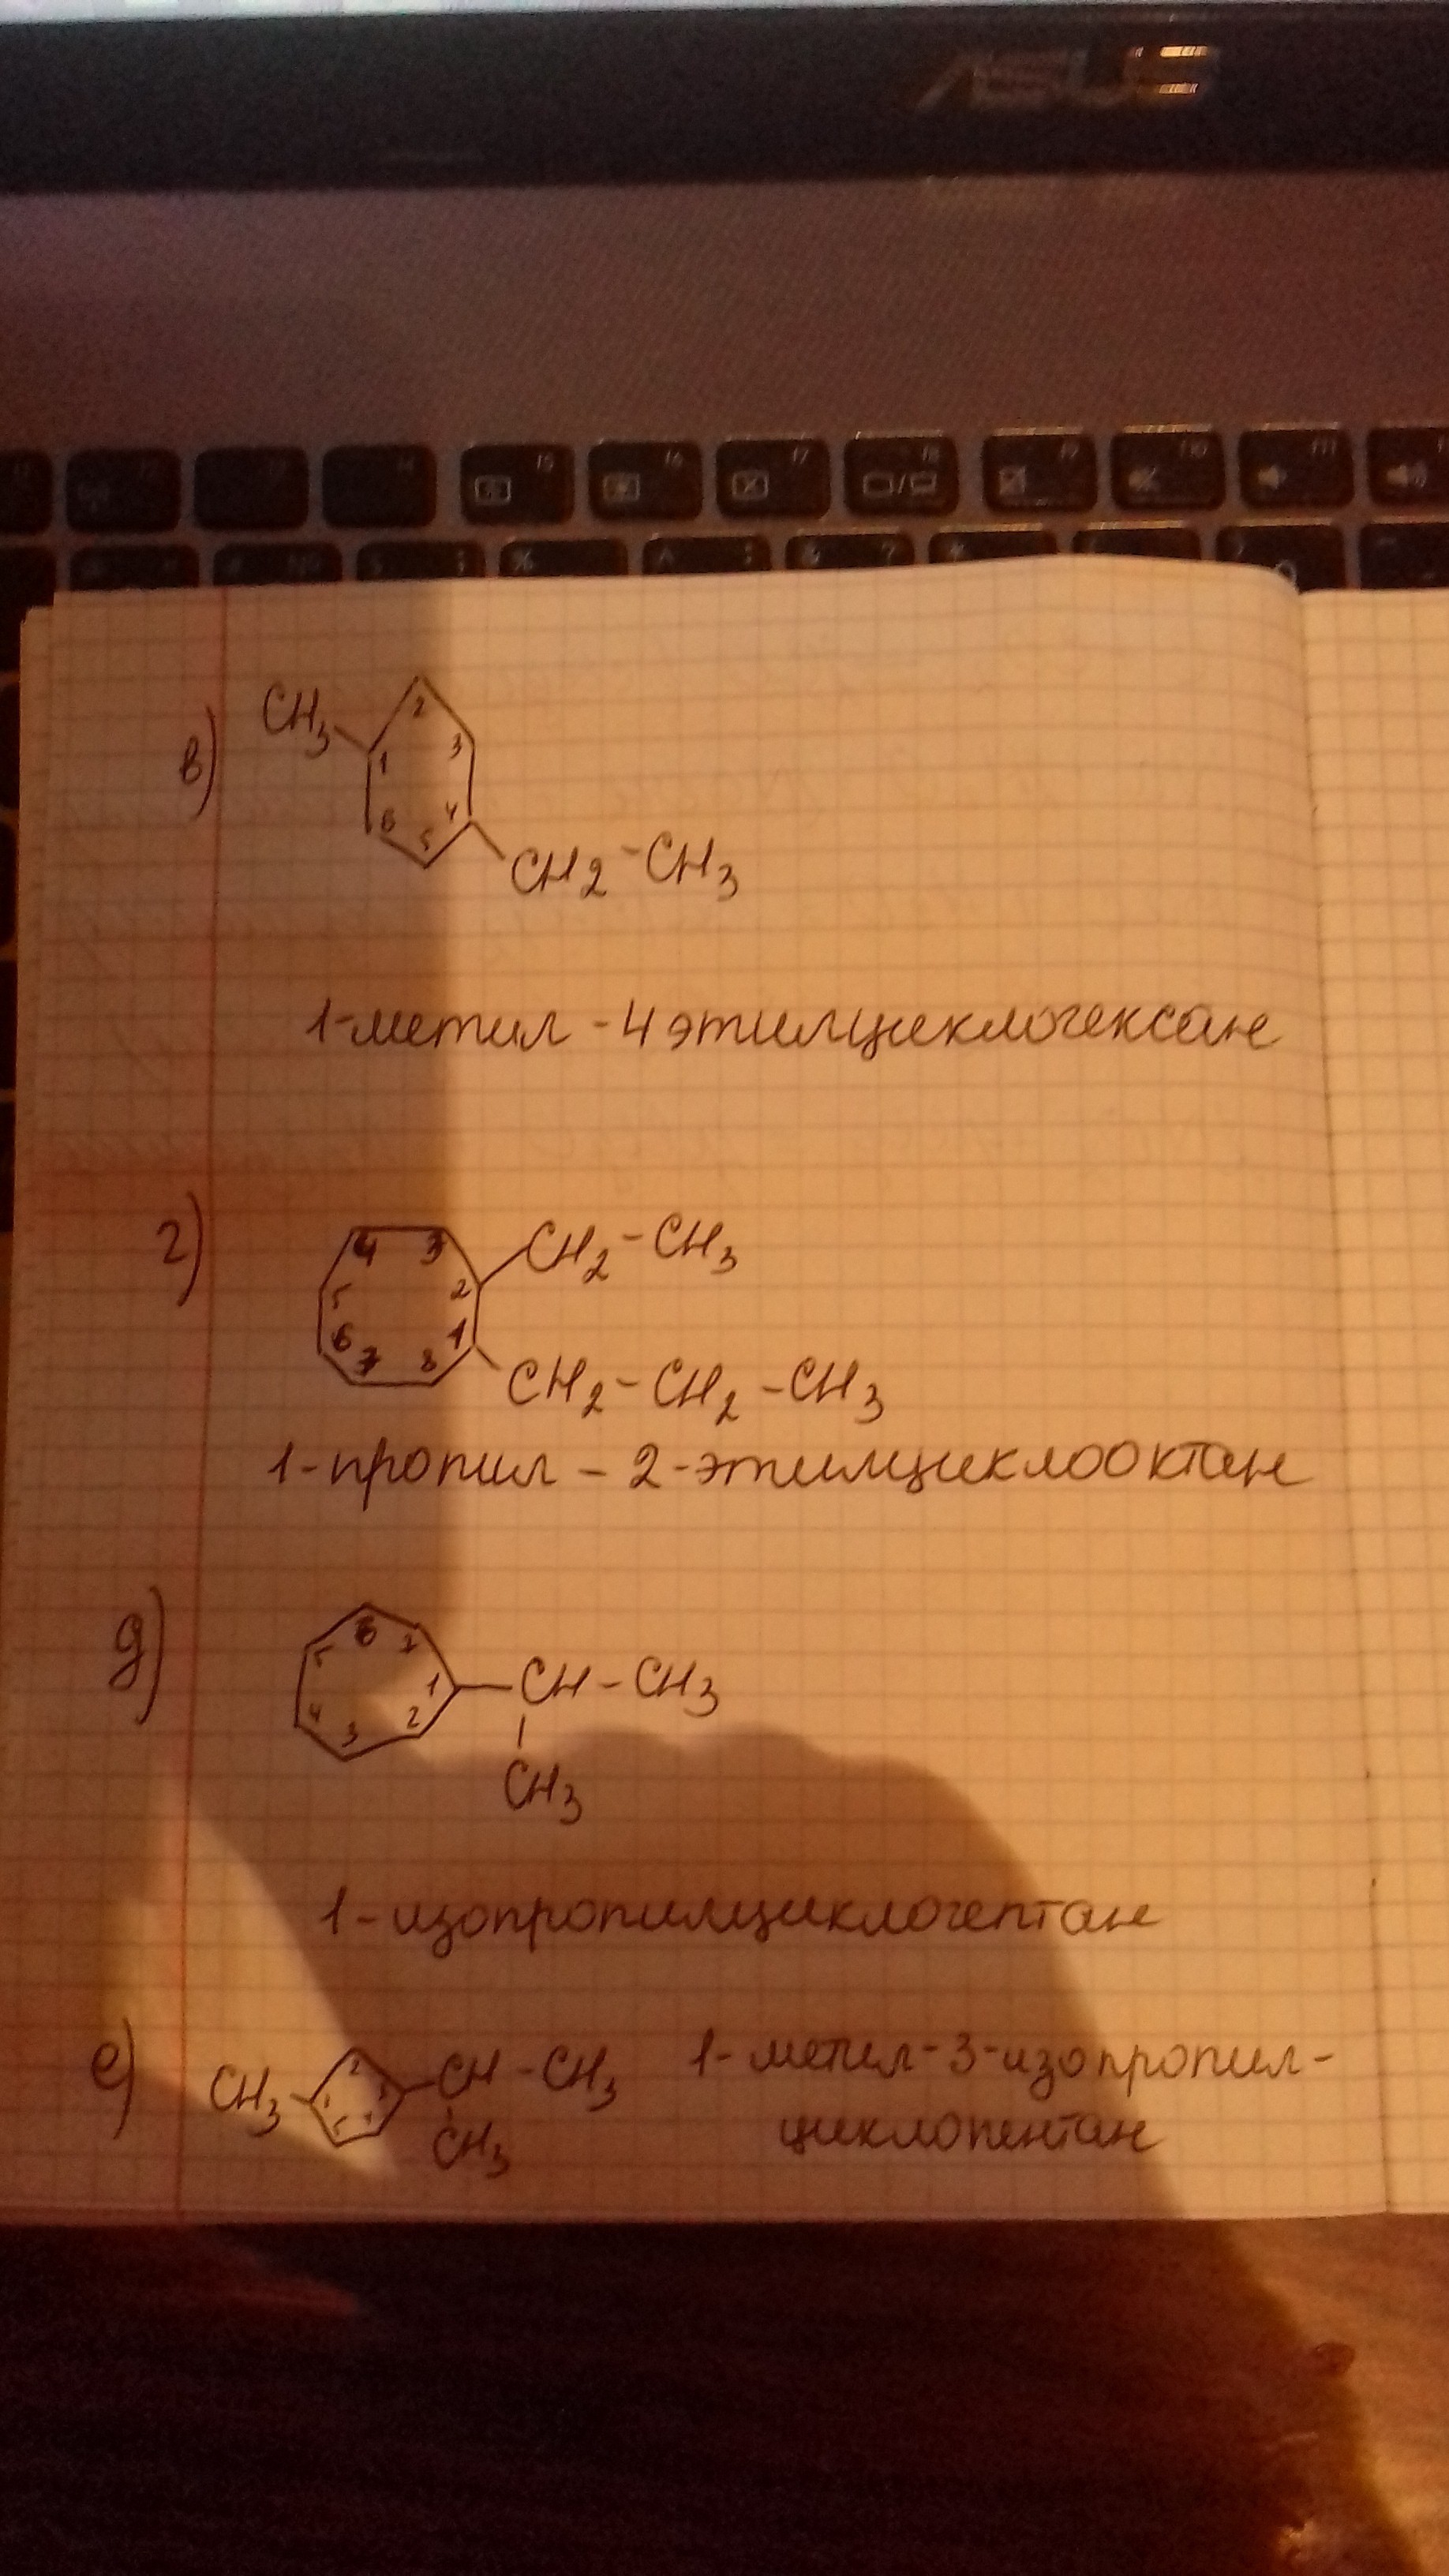 ASUS
f5 f6 f7 f8 f9 f10 f11
в)
CH3
1 2 3 4 5 6
CH2-CH3
1-метил-4этилциклогексан
г)
4 3 2 1 8 7 6 5
CH2-CH3
CH2-CH2-CH3
1-пропил-2-этилциклооктан
д)
5 6 7 1 2 3 4
CH-CH3
CH3
1-изопропилциклогептан
е)
CH3
1 2 3 4 5
CH-CH3
CH3
1-метил-3-изопропил-
циклопентан